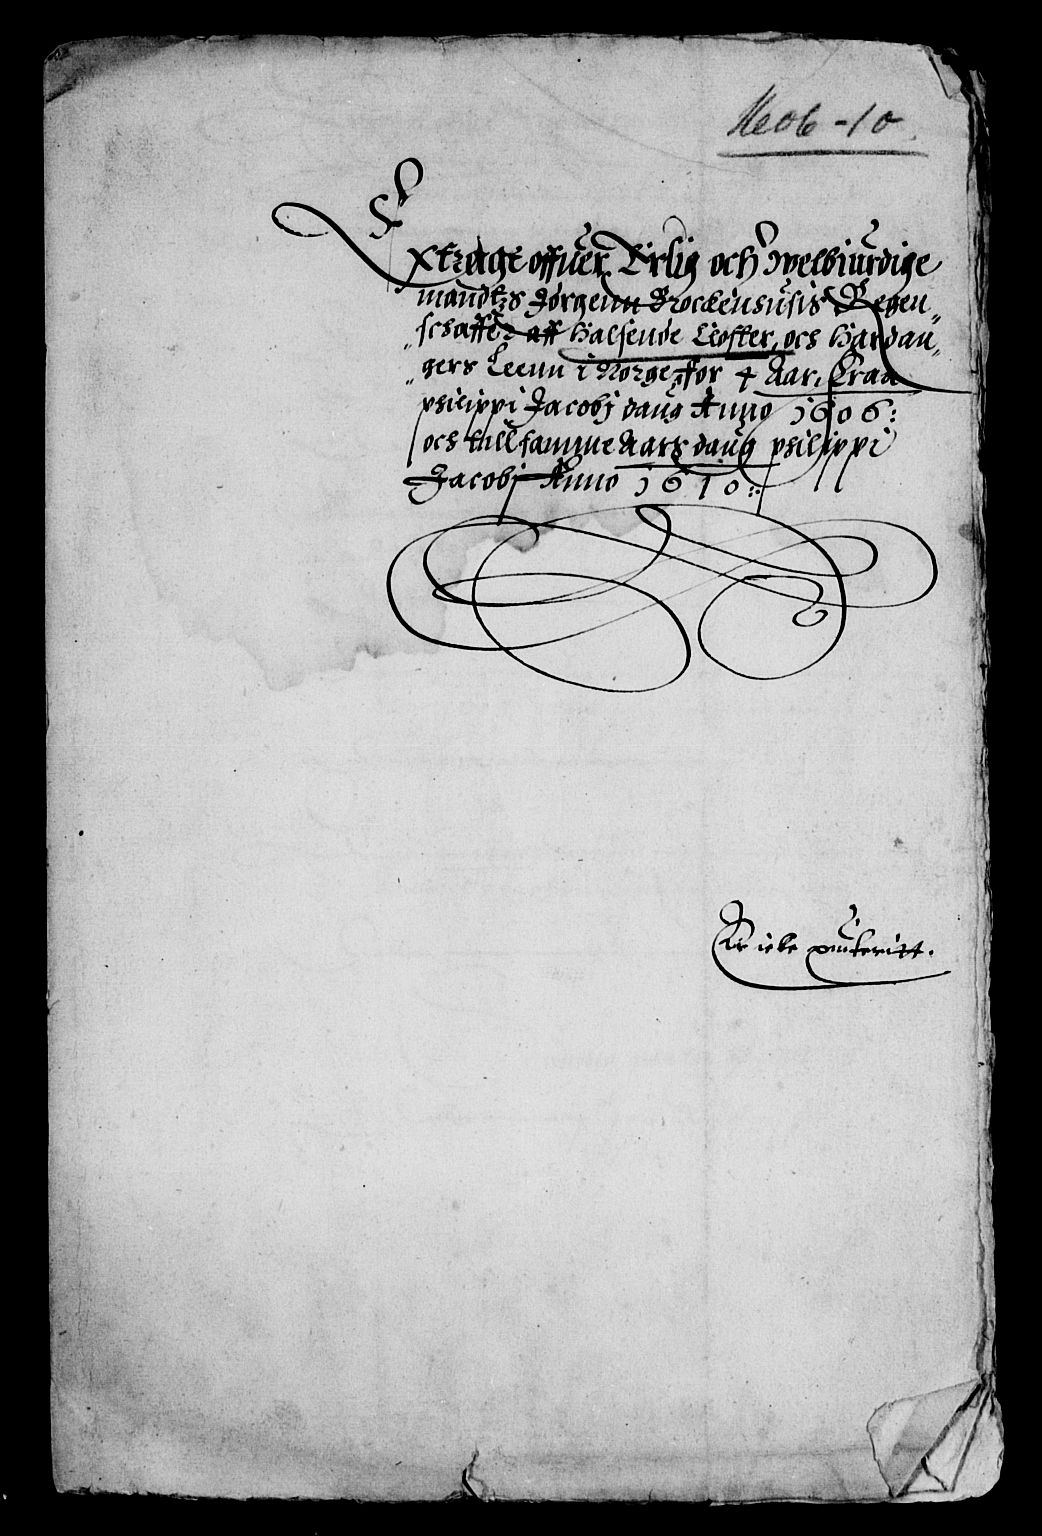 1606-10.
Extragt offuer Erlig och welbiurdige
mandtzs Jørgenn Brockenhusis Regen„
„schaffer aff Halsende Closter, och Hardan„
„gers Leenn i Norge, for 4 Aar, Fraa
philippi Jacobj daug Anno 1606:
och till samme Aars daug philippi
Jacobj Anno 1610::
Er icke quiteritt.